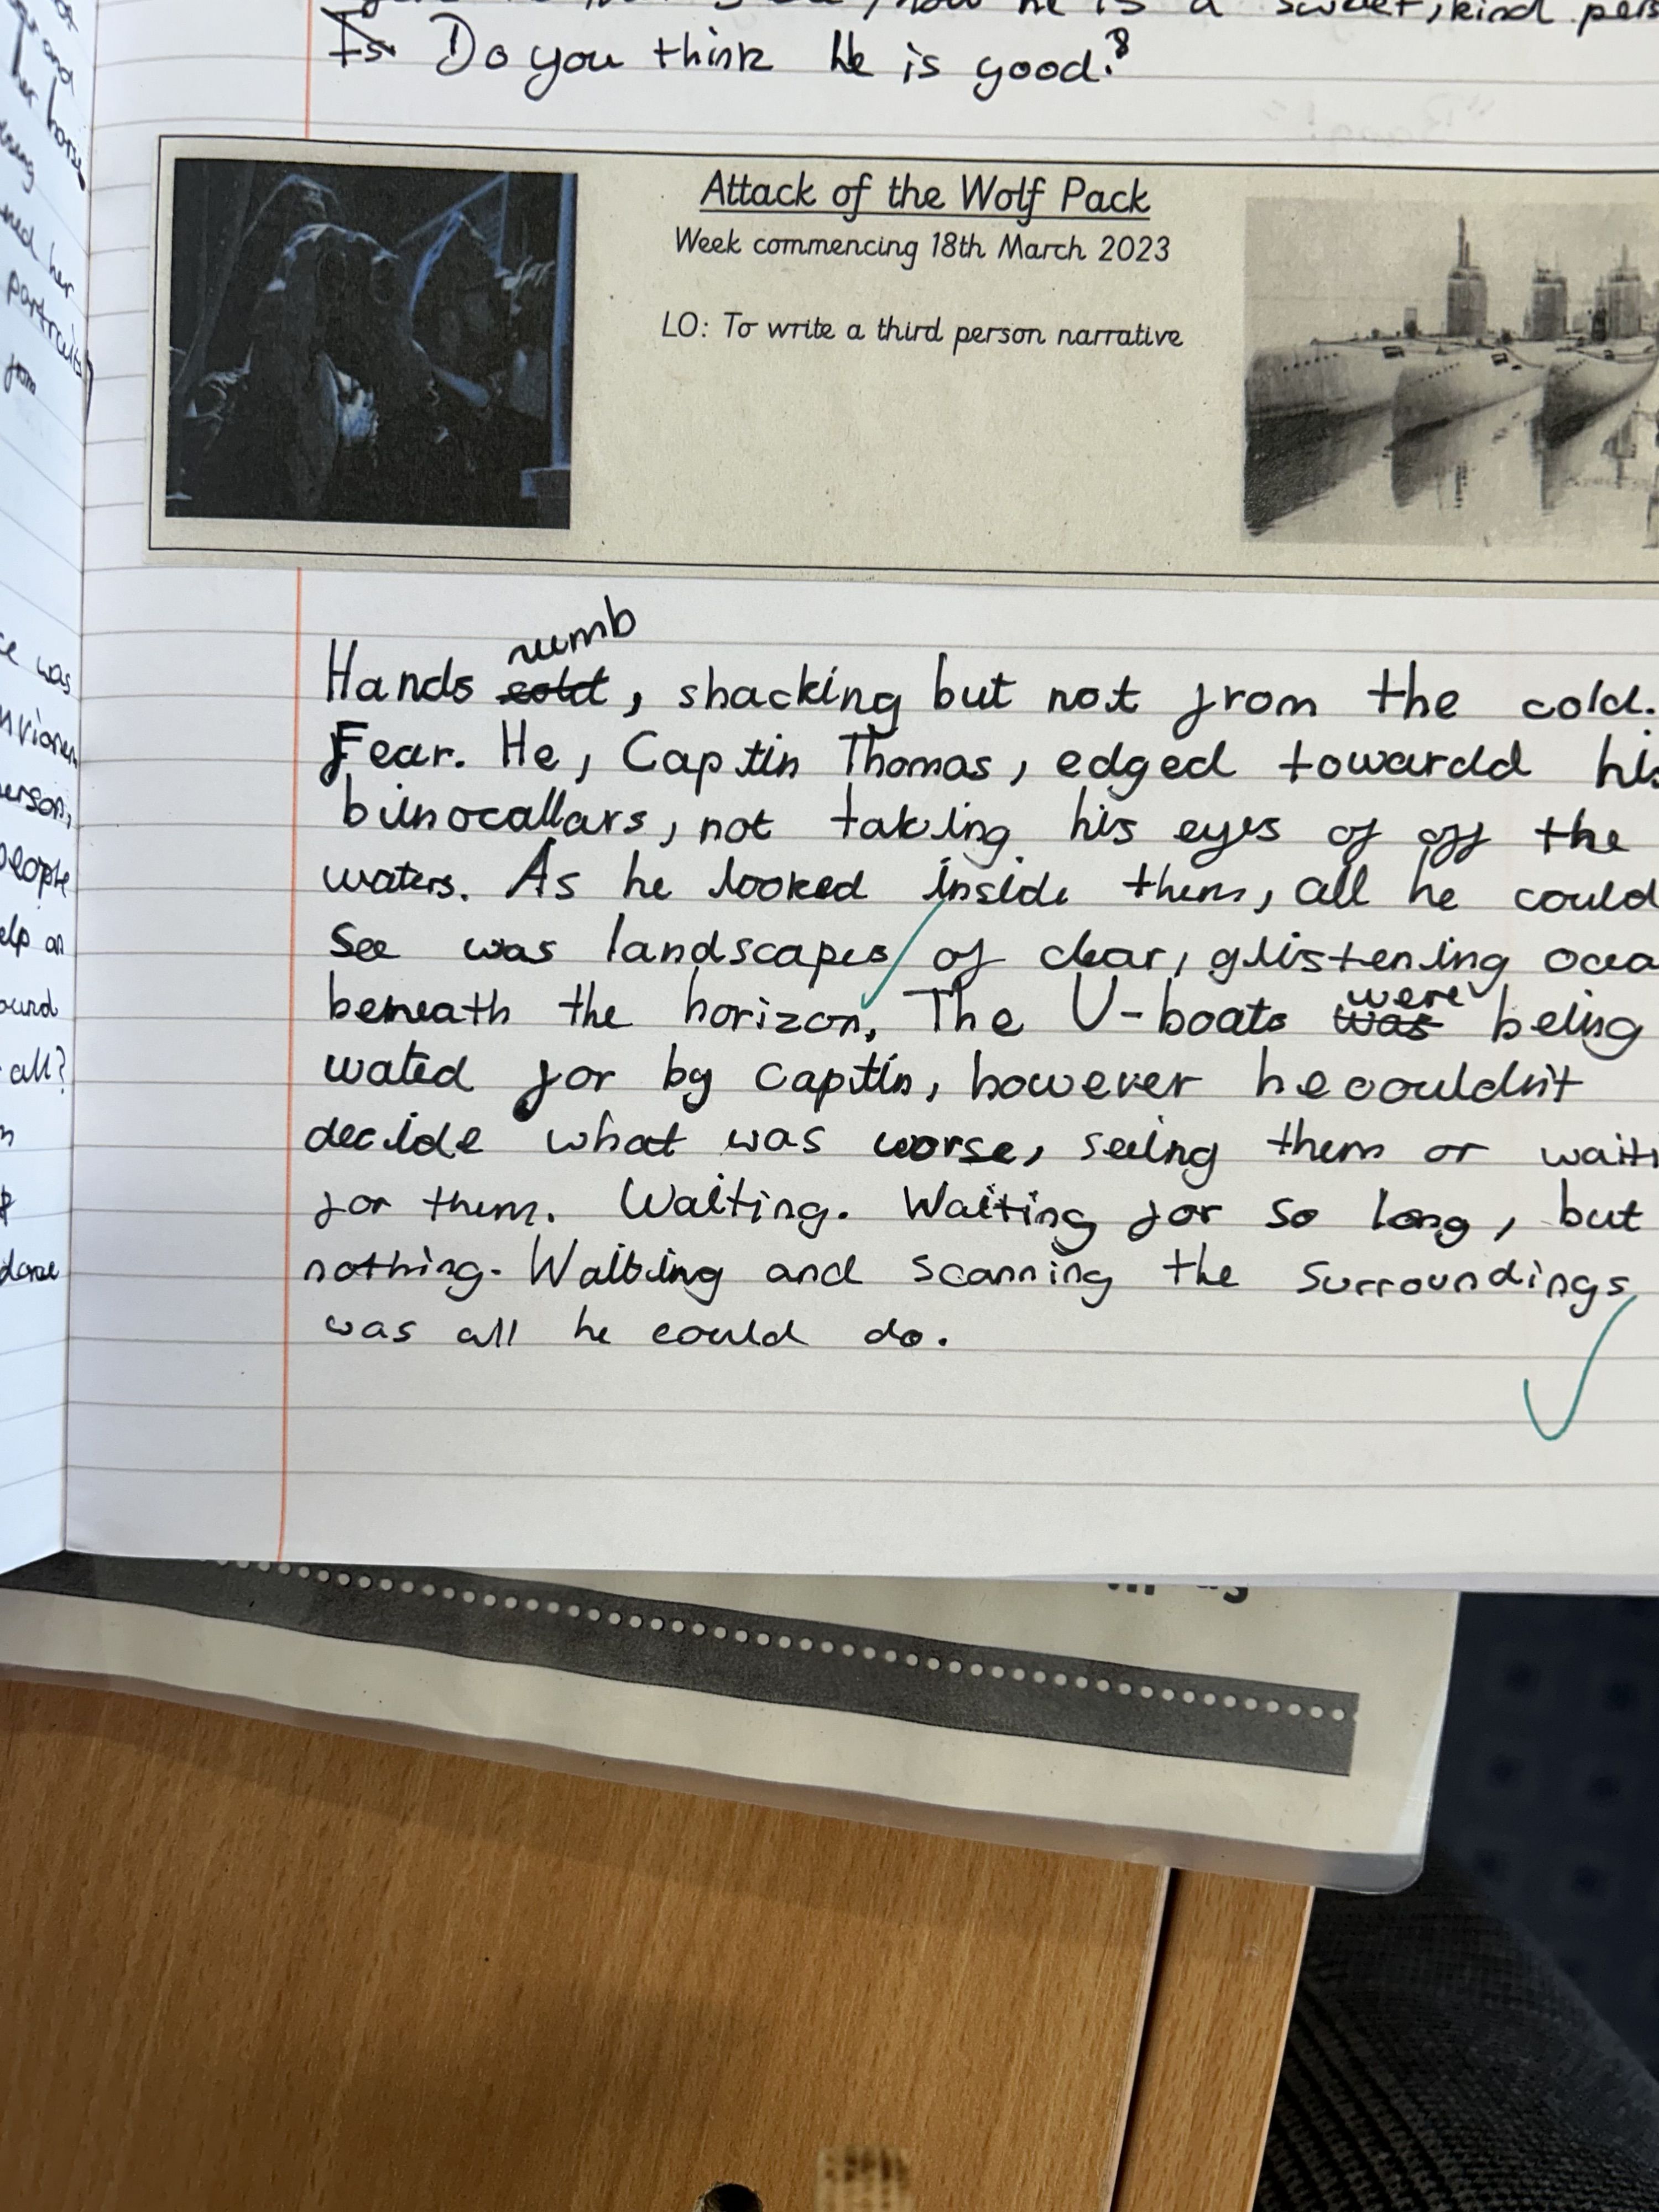 he is a sweet, kind
Is Do you think he is good?
Attack of the Wolf Pack
Week commencing 18th March 2023
LO: To write a third person narrative
numb
Hands cold, shacking but not from the cold.
Fear. He, Captin Thomas, edged towardd his
biinocallars, not taking his eyes of off the
waters. As he looked inside them, all he could
see was landscapes of clear, glistening ocea
beneath the horizon. The U-boats was were being
wated for by Captin, however he couldn't
decide what was worse, seeing them or waiti
for them. Waiting. Waiting for so long, but
nothing. Waiting and scanning the surroundings
was all he could do.
and
horse
her
portrait
from
was
person,
people
elp an
ound
all?